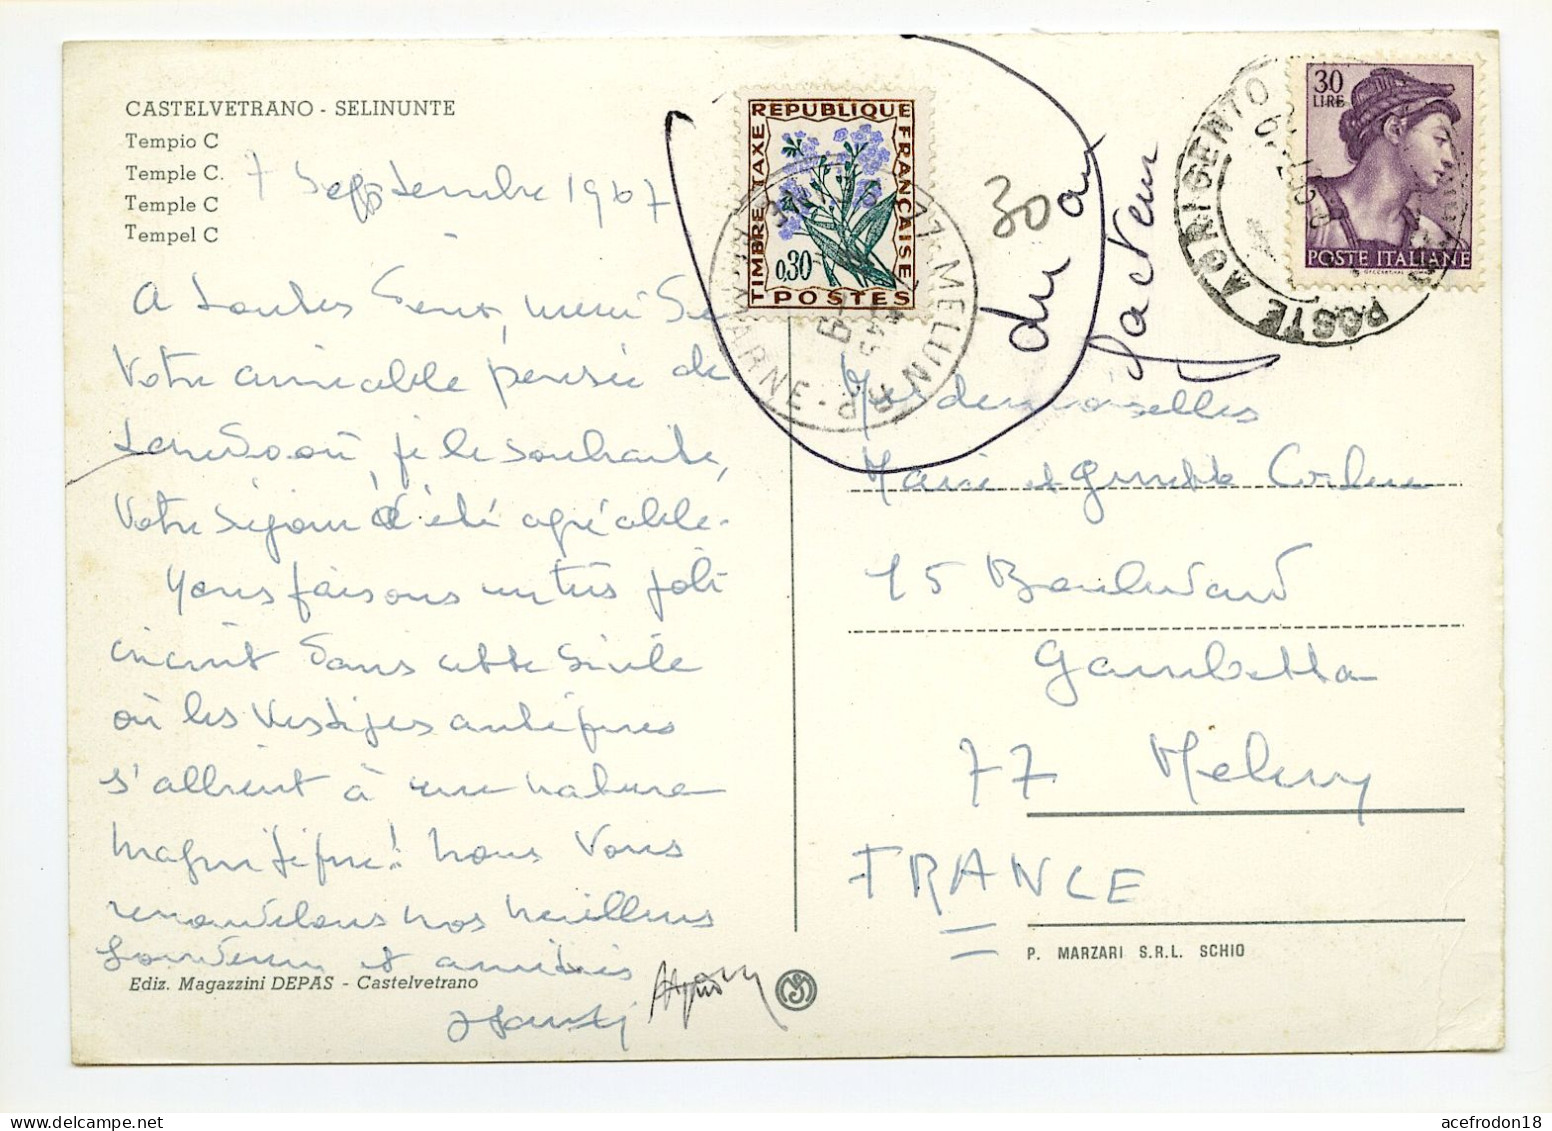 CASTELVETRANO - SELINUNTE
Tempio C
Temple C.
Temple C
Tempel C
7 Septembre 1967
A toutes deux, merci de
votre amicable pensée de
où, je le souhaite,
votre séjour d'été agréable.
Nous faisons un très joli
circuit dans cette Sicile
où les vestiges antiques
s'allient à une nature
magnifique! Nous vous
renouvelons nos meilleurs
souvenirs et amitiés
Ediz. Magazzini DEPAS - Castelvetrano
REPUBLIQUE FRANÇAISE
TIMBRE TAXE
0,30
POSTES
77 MELUN R.P.
MARNE
30
du au
facteur
30 LIRE
POSTE ITALIANE
POSTE AGRIGENTO
Mesdemoiselles
Marie et
15 Boulevard
Gambetta
77 Melun
FRANCE
P. MARZARI S.R.L. SCHIO
acefrodon18